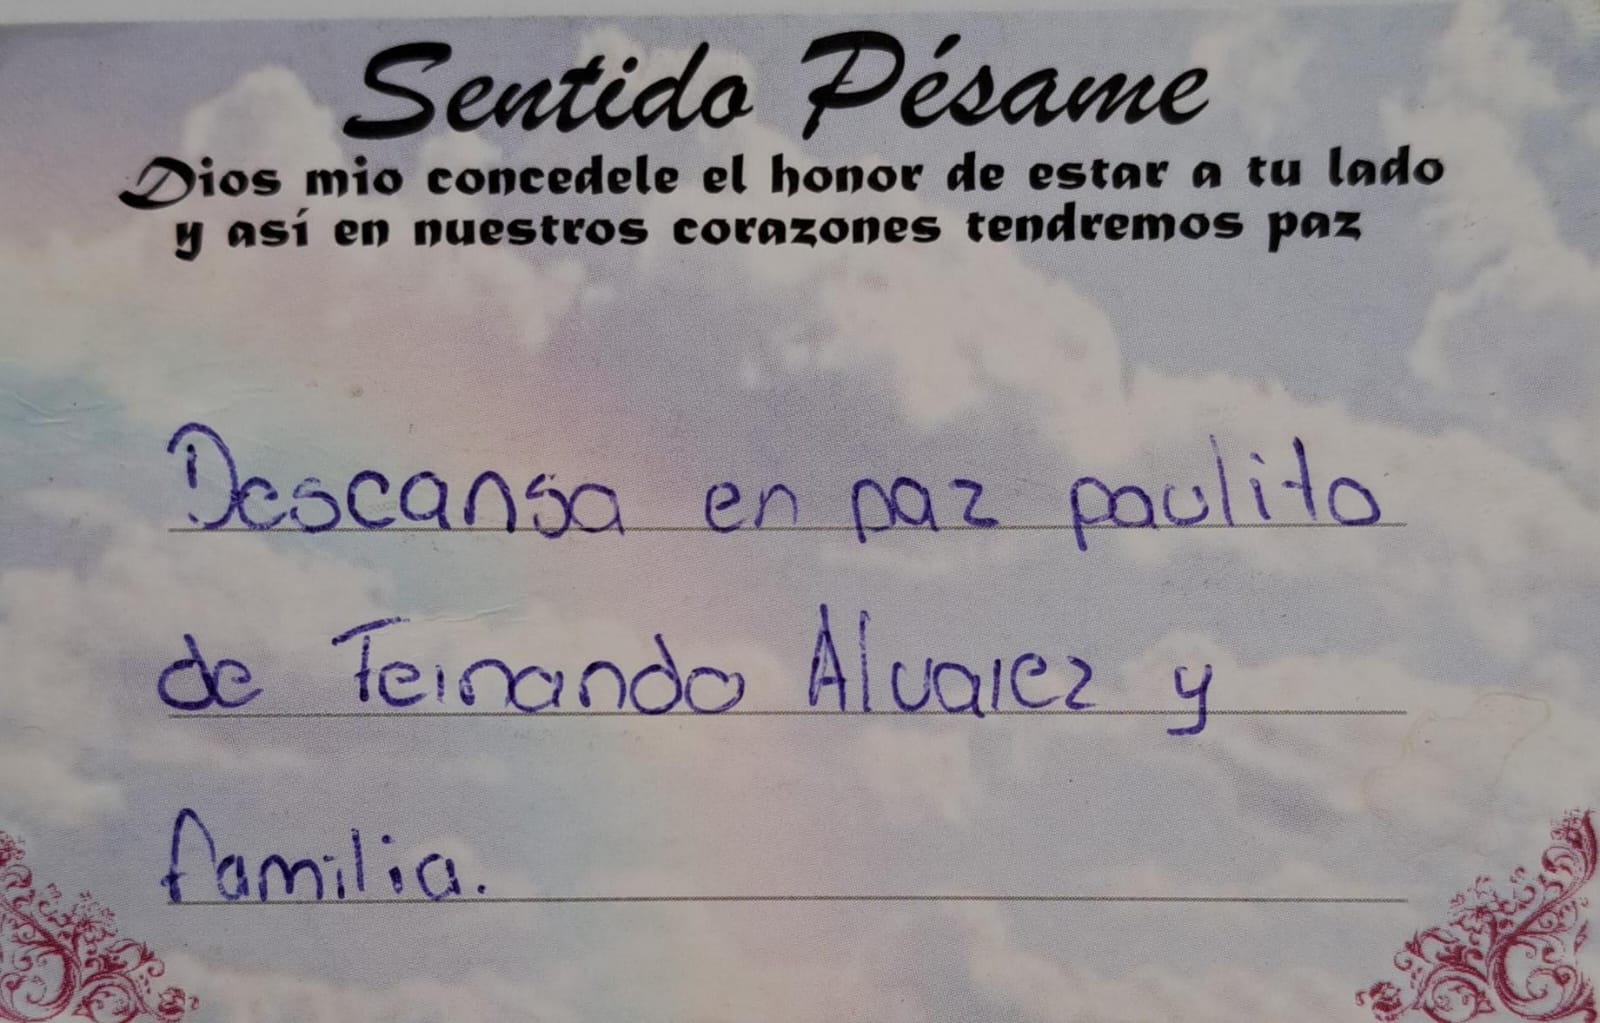 Sentido Pésame
Dios mio concedele el honor de estar a tu lado
y así en nuestros corazones tendremos paz
Descansa en paz paulito
de Fernando Alvarez y
familia.